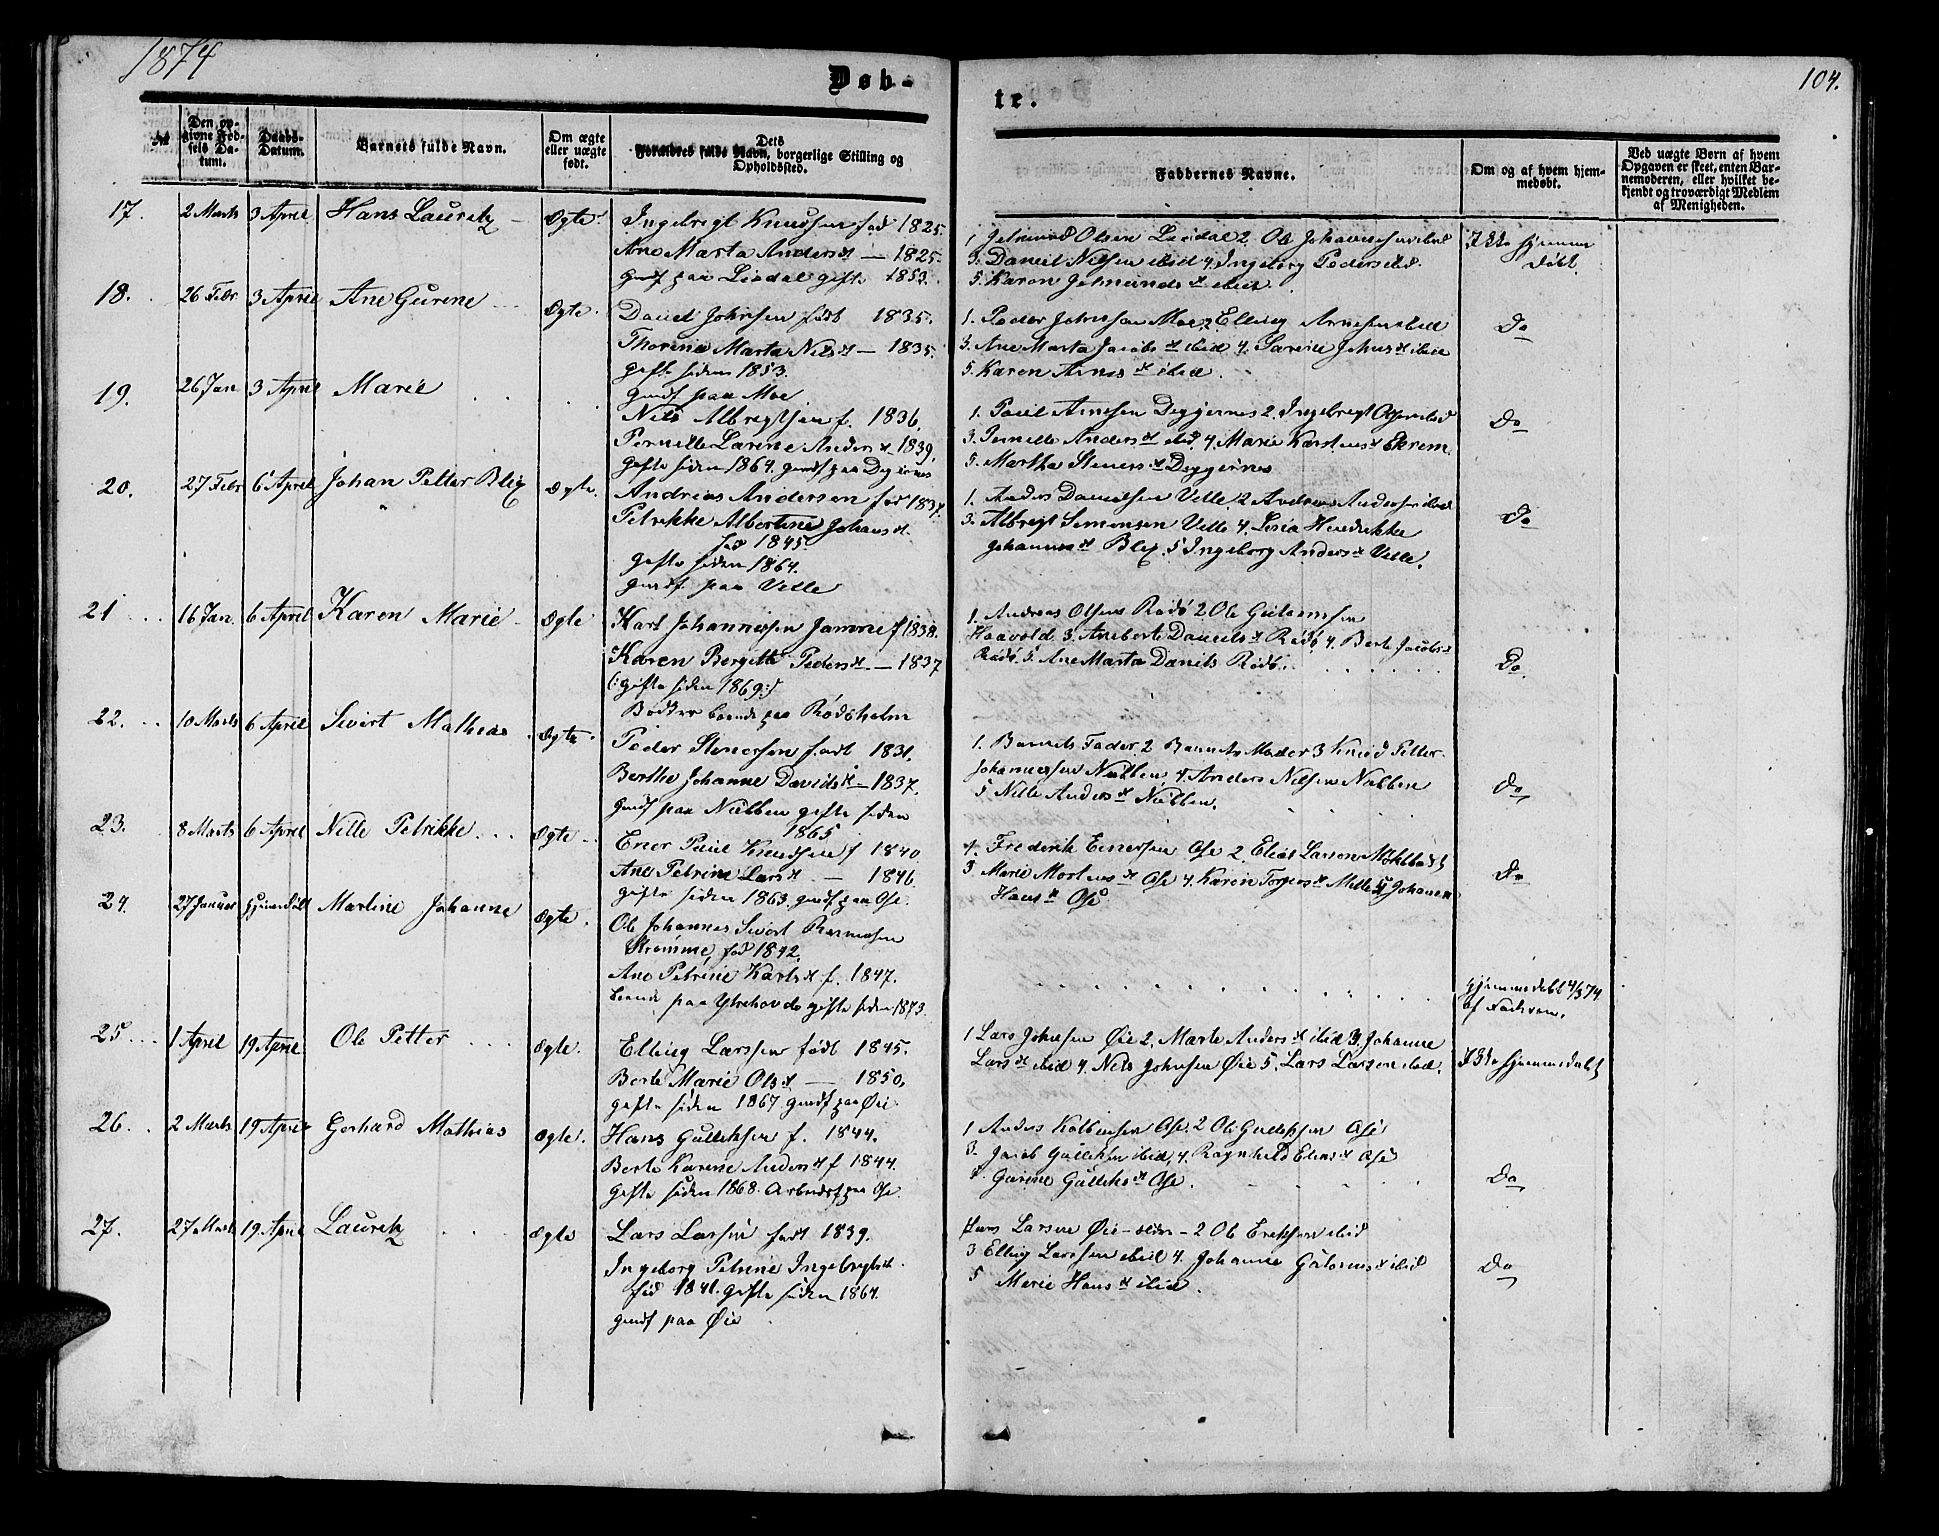 1874
Døb-
te.
104.
№
Den op-
givne Fød-
sels Da-
tum.
Daabs-
Datum.
Barnets fulde Navn.
Om ægte
eller uægte
født.
Dets
Forældres fulde Navn, borgerlige Stilling og
Opholdssted.
Faddernes Navne.
Om og af hvem hjem-
medøbt.
Ved uægte Børn af hvem
Opgaven er skeet, enten Bar-
nemoderen, eller hvilket be-
kjendt og troværdigt Medlem
af Menigheden.
17. 2 Marts 3 April Hans Lauritz ægte
Ingebrigt Knudsen fød 1825.
Ane Marta Andersd — 1825.
Gmdf paa Liadal gifte 1853.
1 Olsen Liadal 2. Ole Johannessen ibid
3. Daniel Nilsen ibid 4. Ingeborg Pedersd ibid.
5. Karen Jetmundsd ibid.
Ikke hjemme
døbt
18. 26 Febr 3 April Ane Gurine ægte.
Daniel Johnsen født 1835.
Thorine Marta Nilsd — 1835.
gifte siden 1853.
Gmdf paa Moe
1. Peder Johnsen Moe, 2. Elling Arnesen ibid
3. Ane Marta Jacobsd ibid 4. Sarine Johnsd ibid
5. Karen Arnesd ibid.
Do
19. 26 Jan 3 April Marie
Nils Albregtsen f. 1836.
Pernille Larine Andersd 1839.
gifte siden 1864. gmdf paa Deggernes
1. Paul Arnesen Deggernes 2. Ingebrigt ibid
3. Pernille Andersd ibid. 4. Marie Karstensd Ekrem
5. Martha Steners d Deggernes
Do
20. 27 Febr 6 April Johan Petter Blix ægte.
Andreas Andersen fød 1837.
Petrikke Albertine Johansd.
fød 1845.
gifte siden 1864.
gmdf paa Velle
1. Anders Danielsen Velle, 2 Andreas Andersen ibid
3. Albregt Simonsen Velle 4. Lovia Hendrikke
Johannesd Blix. 5 Ingeborg Andersd Velle.
Do
21 16 Jan. 6 April Karen Marie ægte
Kart Johannessen Jamne f 1838.
Karen Bergitte Pedersd. — 1837
(:gifte siden 1869:)
Bødker boende paa Rødsholm
1. Andreas Olsen Rødø 2 Ole Gulaumsen
Haavold 3. Aneberte Danielsd Rødø 4. Berte Jacobsd
Rødø 5. Ane Marta Daniels Rødø.
Do
22. 10 Marts 6 April Sivert Mathias ægte
Peder Stenersen født 1831.
Berthe Johanne Davidsd — 1837.
gmdf paa Nubben gifte siden
1865
1. Barnets Fader 2 Barnets Moder 3 Knud Petter
Johannessen Nubben 4. Anders Nilsen Nubben
5 Nille Andersd Nubben.
Do
23. 8 Marts 6 April Nille Petrikke ægte
Ener Paul Knudsen f 1840.
Ane Petrine Larsd. — 1846.
gifte siden 1863. gmdf paa Ose.
1. Frederik Enersen Ose 2. Elias Larsen
3 Marie Mortensd Ose 4. Karen Torgersd Melle 5 Johanne
Hansd Ose
Do
24. 27 Januar hjemmedøbt Martine Johanne ægte.
Ole Johannes Sivert Rasmusen
Strømme, fød 1842.
Ane Petrine Karlsd f. 1847.
boende paa Ytrehovde gifte siden 1873.
hjemmedøbt 4/3 74
af
25. 1 April 19 April Ole Petter ægte.
Elling Larssen født 1845.
Berte Marie Olsd — 1850.
gifte siden 1867 gmdf paa Øie
1 Lars Johnsen Øie 2. Marte Andersd ibid 3. Johanne
Larsd ibid 4. Nils Johnsen Øie 5. Lars Larsen ibid.
Ikke hjemmedøbt
26. 2 Marts 19 April Gerhard Mathias ægte.
Hans Gulliksen f. 1844.
Berte Karine Andersd f 1844.
gifte siden 1868. Arbeidsf paa Ose.
1 Anders Kolbensen Ose. 2 Ole Gulliksen Ose
3. Jacob Gulliksen ibid, 4. Ragnhild Eliasd Ose
5. Gurine Gulliksd Ose.
Do
27. 27 Marts 19 April Lauritz ægte
Lars Larsen født 1839.
Ingeborg Petrine Ingebrigtsd.
fød 1841. gifte siden 1864.
gmdf paa Øie
1 Lars Larsen Øie 2 Ole Eriksen ibid
3 Elling Larssen ibid 4. Johanne Gulaumsd ibid
5 Marie Hansd ibid.
Do